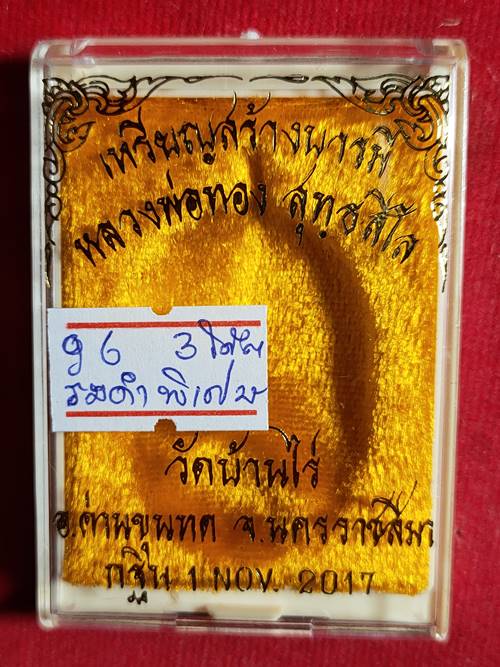 เหรียญสร้างบารมี
หลวงพ่อทอง สุทฺธสีโล
96 3โค๊ต
รมดำพิเศษ
วัดบ้านไร่
อ.ด่านขุนทด จ.นครราชสีมา
กฐิน 1 NOV. 2017